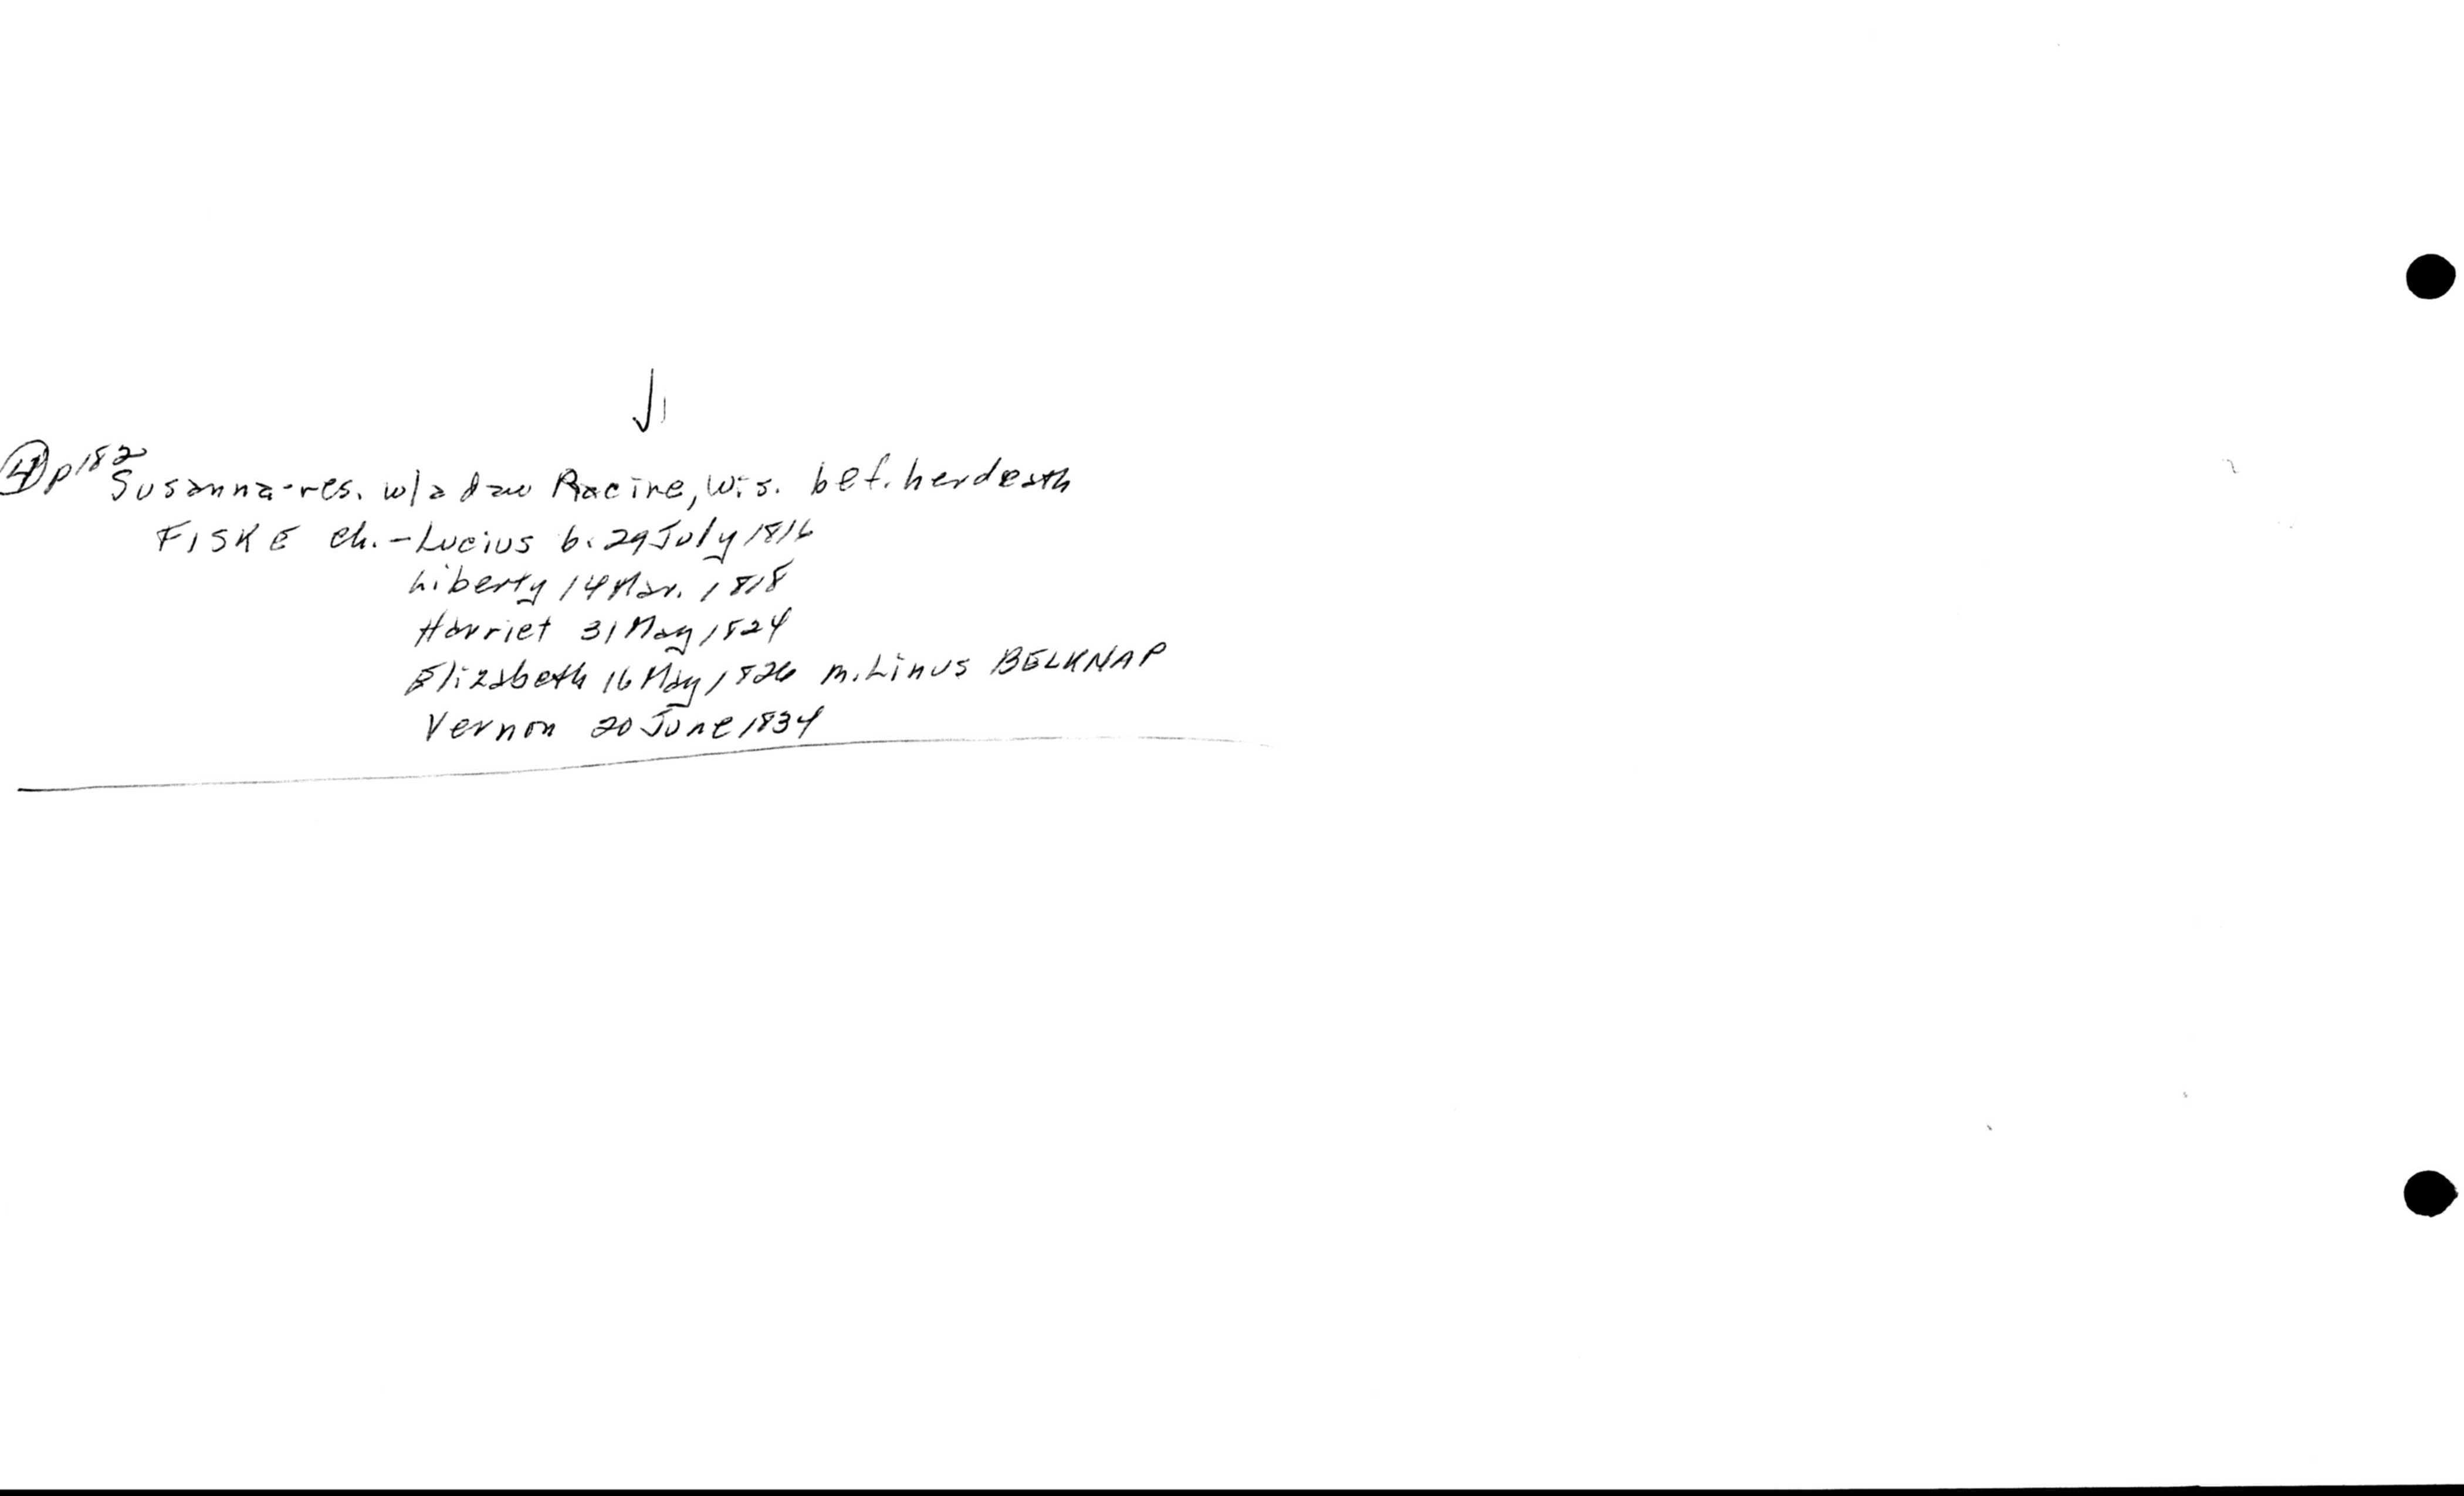 ④ p182
Susanna-res. w/a dau Racine, Wis. bef. her death
FISKE ch. - Lucius b. 29 July 1816
Liberty 14 Mar. 1818
Harriet 31 May 1824
Elizabeth 16 May 1826 m. Linus BELKNAP
Vernon 20 June 1834